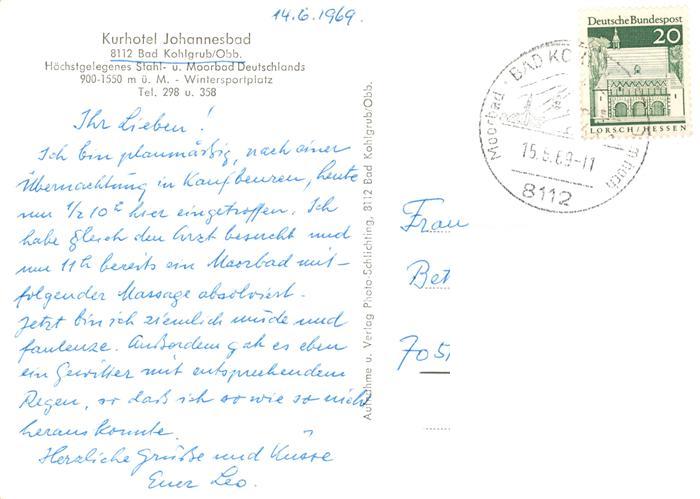 14.6.1969.
Kurhotel Johannesbad
8112 Bad Kohlgrub/Obb.
Höchstgelegenes Stahl- u. Moorbad Deutschlands
900-1550 m ü. M. - Wintersportplatz
Tel. 298 u. 358
Ihr Lieben!
Ich bin planmäßig, nach einer
Übernachtung in Kaufbeuren, heute
um 1/2 10 h hier eingetroffen. Ich
habe gleich den Arzt besucht und
um 11h bereits ein Moorbad mit-
folgender Massage absolviert.
Jetzt bin ich ziemlich müde und
faulenze. Außerdem gab es eben
ein Gewitter mit entsprechendem
Regen, so daß ich so wie so nicht
heraus konnte.
Herzliche Grüße und Küsse
Euer Leo.
Aufnahme u. Verlag Photo-Schlichting, 8112 Bad Kohlgrub/Obb.
Deutsche Bundespost
20
LORSCH/HESSEN
Moorbad · BAD KO
15.6.69-11
8112
Frau
Bet
705